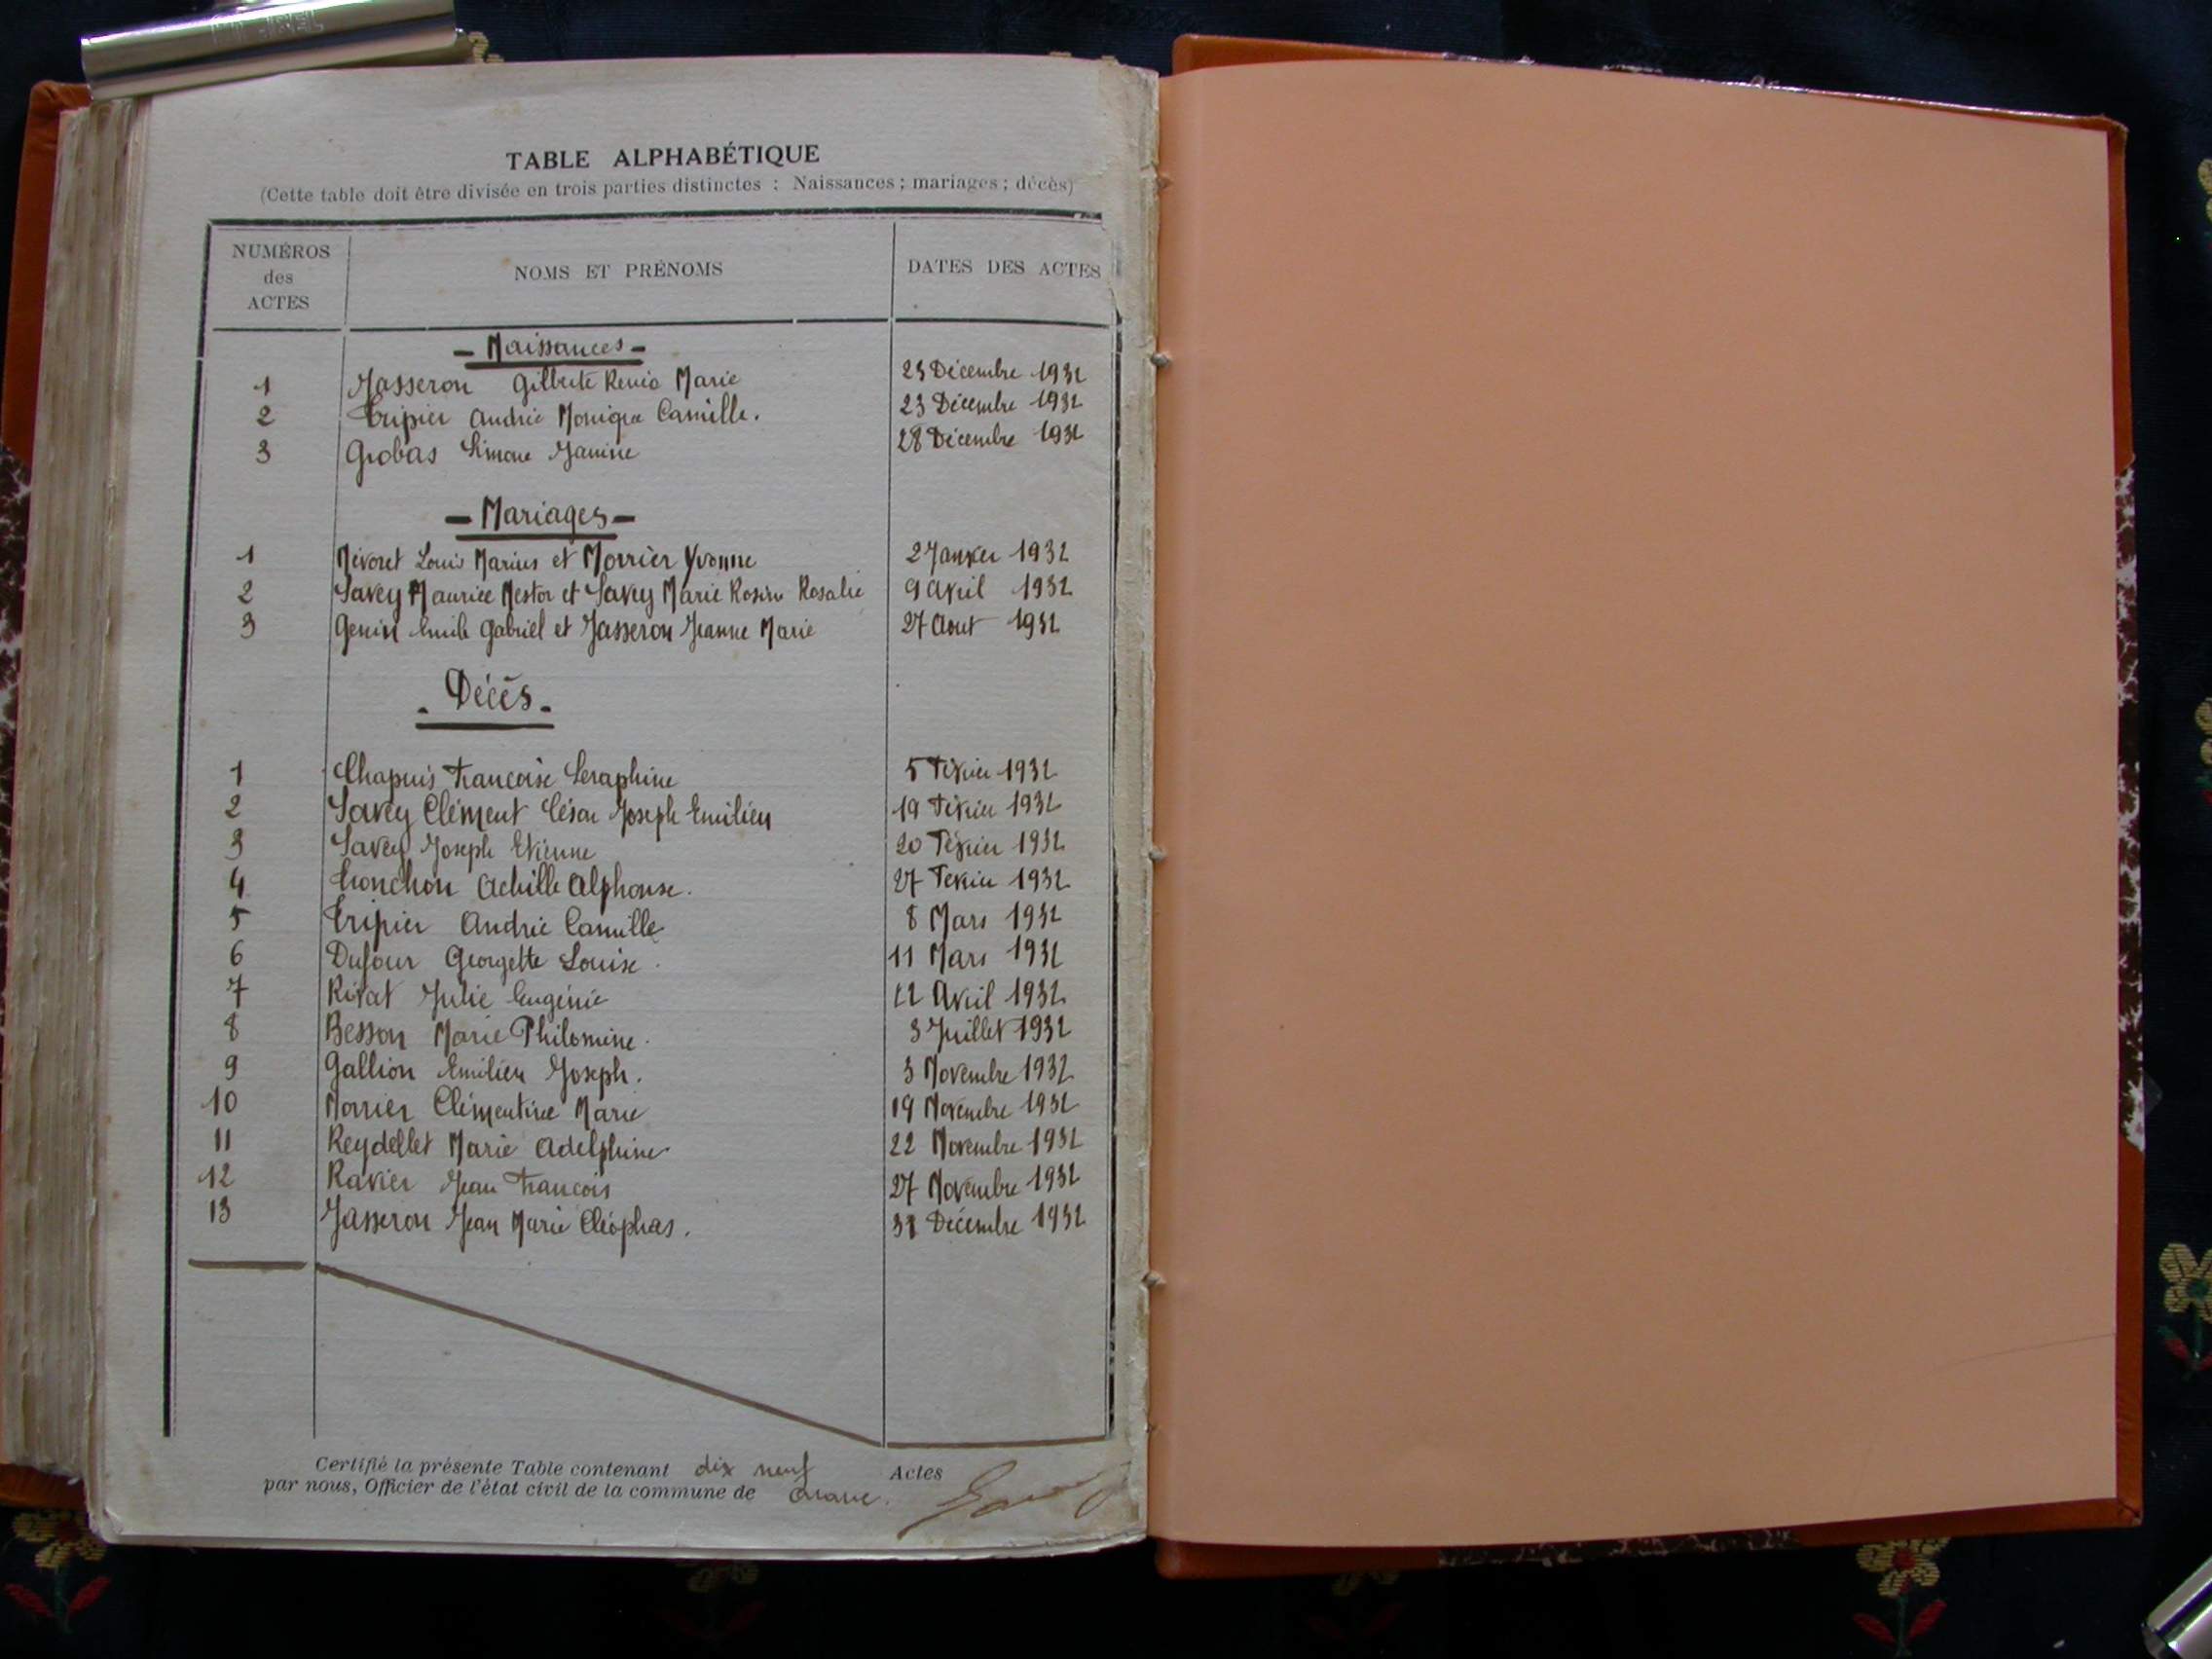 TABLE ALPHABÉTIQUE
(Cette table doit être divisée en trois parties distinctes : Naissances ; mariages ; décès)
NUMÉROS des ACTES NOMS ET PRÉNOMS DATES DES ACTES
- Naissances -
1 Jasseron Gilberte Renée Marie 23 Décembre 1932
2 Tripier Andrée Monique Camille. 23 Décembre 1932
3 Grobas Simone Janine 28 Décembre 1932
- Mariages -
1 Mévoret Louis Marius et Morrier Yvonne 2 Janvier 1932
2 Savey Maurice Nestor et Savey Marie Rosine Rosalie 9 Avril 1932
3 Genin Emile Gabriel et Jasseron Jeanne Marie 27 Aout 1932
- Décès -
1 Chapuis Francoise Seraphine 5 Février 1932
2 Savey Clément César Joseph Emilien 19 Février 1932
3 Savey Joseph Etienne 20 Février 1932
4 Tronchon Achille Alphonse. 27 Février 1932
5 Tripier Andrée Camille 8 Mars 1932
6 Dufour Georgette Louise. 11 Mars 1932
7 Rivat Julie Eugénie 12 Avril 1932
8 Besson Marie Philomine. 3 Juillet 1932
9 Gallion Emilien Joseph. 3 Novembre 1932
10 Morrier Clémentine Marie 19 Novembre 1932
11 Reydellet Marie Adelphine 22 Novembre 1932
12 Ravier Jean Francois 27 Novembre 1932
13 Jasseron Jean Marie Cléophas. 31 Décembre 1932
Certifié la présente Table contenant dix neuf Actes
par nous, Officier de l'état civil de la commune de